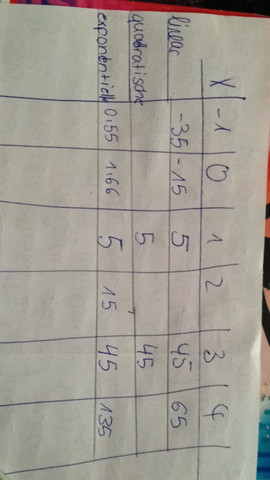 X -1 0 1 2 3 4
linear -35 -15 5 45 65
quadratische 5 45
exponentiell 0.55 1.66 5 15 45 135